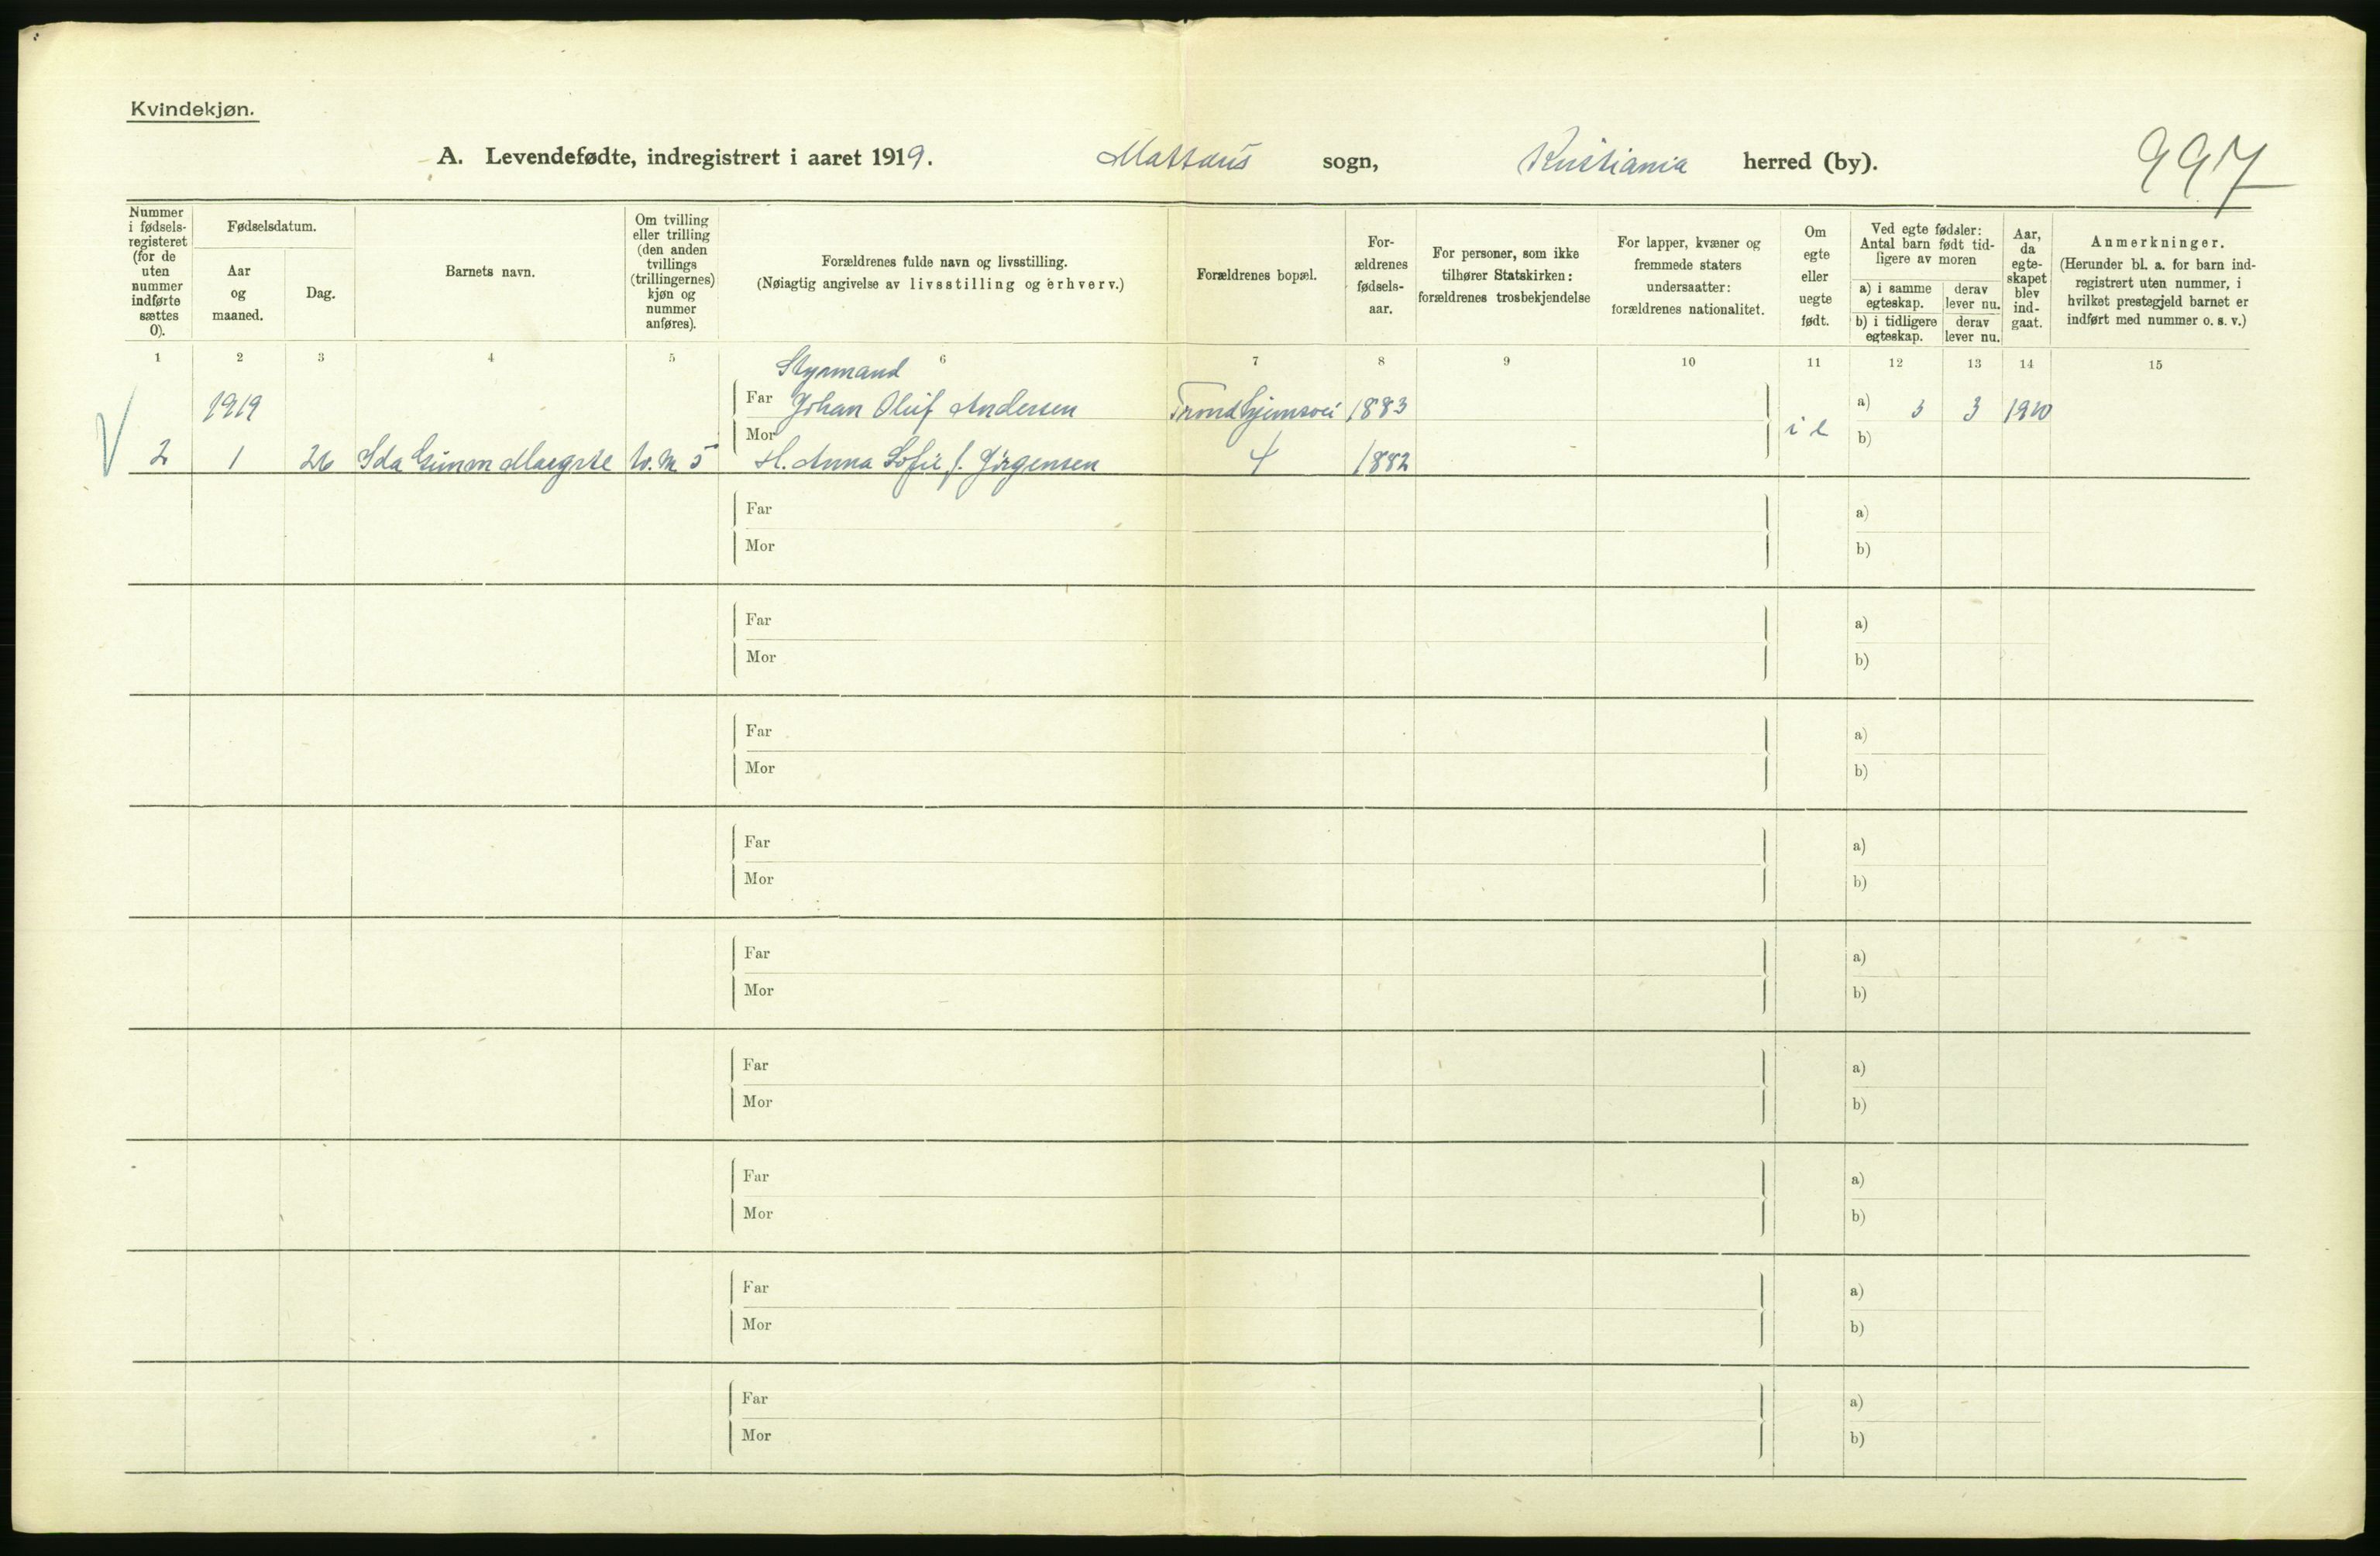 Kvindekjøn.
A. Levendefødte, indregistrert i aaret 1919. Mattæus sogn, Kristiania herred (by). 997
Nummer i fødselsregisteret (for de uten nummer indførte sættes 0).
Fødselsdatum.
Aar og maaned.
Dag.
Barnets navn.
Om tvilling eller trilling (den anden tvillings (trillingernes) kjøn og nummer anføres).
Forældrenes fulde navn og livsstilling.
(Nøiagtig angivelse av livsstilling og erhverv.)
Forældrenes bopæl.
Forældrenes fødselsaar.
For personer, som ikke tilhører Statskirken: forældrenes trosbekjendelse
For lapper, kvæner og fremmede staters undersaatter: forældrenes nationalitet.
Om egte eller uegte født.
Ved egte fødsler: Antal barn født tidligere av moren
a) i samme egteskap. derav lever nu.
b) i tidligere egteskap. derav lever nu.
Aar, da egteskapet blev indgaat.
Anmerkninger.
(Herunder bl. a. for barn indregistrert uten nummer, i hvilket prestegjeld barnet er indført med nummer o. s. v.)
1 2 3 4 5 6 7 8 9 10 11 12 13 14 15
Styrmand
1919 Far Johan Oluf Andersen Trondhjemsvei 1883 a) 3 3 1910
Mor i e b)
2 1 26 Ida Gunvor Margrete U. M 5 H. Anna Sofie f. Jörgensen 4 1882
Far a)
Mor b)
Far a)
Mor b)
Far a)
Mor b)
Far a)
Mor b)
Far a)
Mor b)
Far a)
Mor b)
Far a)
Mor b)
Far a)
Mor b)
Far a)
Mor b)